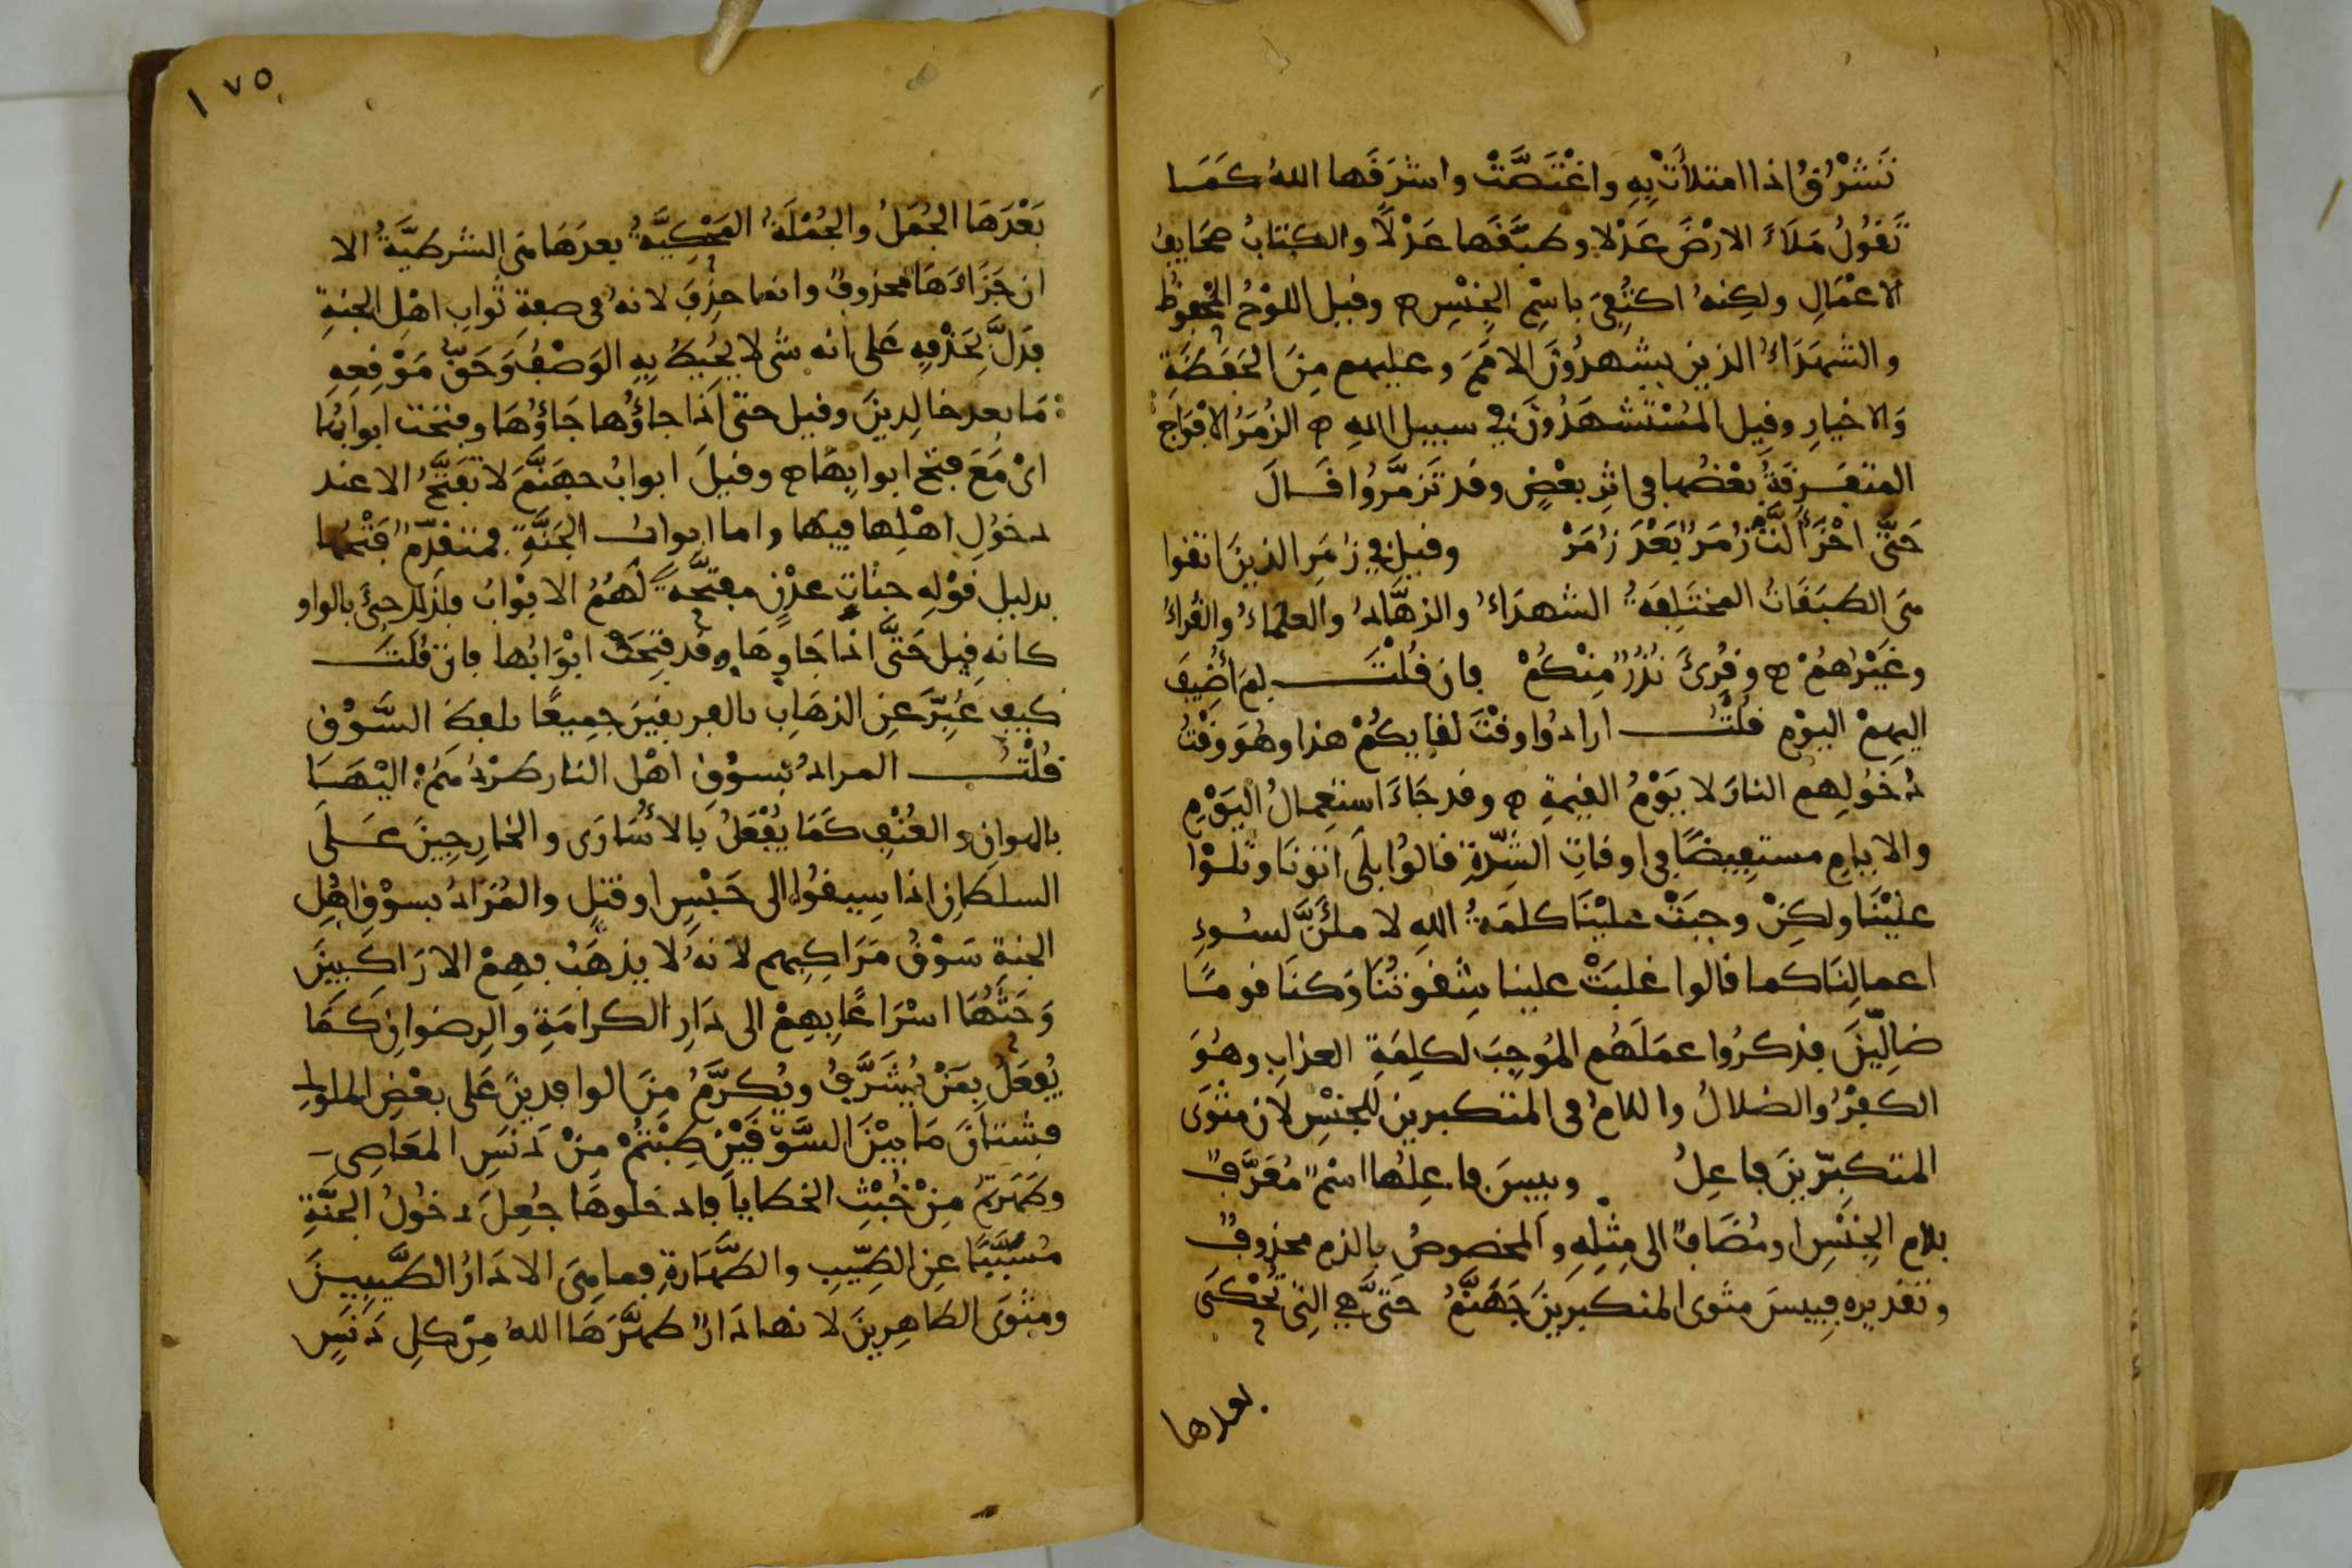 تَشْرُقُ اذا امتلأَتْ بِهِ واغْتَصَّتْ واشرَقَها اللهُ كَمَا
تَقُولُ مَلَأَ الارْضَ عَدْلا وطبَّقَها عَدْلًا والكتابُ صحَايفُ
الاعْمَالِ ولكِنهُ اكتُفِىَ باسْمِ الجِنْسِ ه وقيل اللوْحُ المحْفوظُ
والشهَدَاءُ الذين يشهدُونَ الامَمَ وعليهم مِنَ الحَفَظَةِ
وَالاخيارِ وقيل المُسْتَشهَدُونَ في سبيل اللهِ ه الزُمَرُ الافْوَاج
المتفرِقَةُ بعْضُها فى اثرِ بعْضٍ وقد تَزمَّرُوا قَالَ
حَتَّى احْزَأَلَّتْ زُمَرٌ بَعْدَ زُمَرْ وقيل في زمَرِ الذينَ اتقوا
هى الطبَقَاتُ المختَلِفَةُ الشهدَاءُ والزهَّادُ والعلمَاءُ والقراءُ
وغَيْرُهُمْ ه وقُرِئَ نُذُرٌ مِنْكُمْ فان قُلْتَ لِمَ أُضِيفَ
اليهِمْ اليوْم قلْتُ ارادُوا وقْتَ لقايكُمْ هذا وهُوَ وقْتُ
دُخُولِهم النارَ لا يَوْمُ القيمةِ ه وقد جَاءَ استعمالُ اليَوْمِ
والايام مستفيضًا فى اوقاتِ الشِدَّةِ قالوُا بلَى اتوْنَا وتلَوْا
علَيْنَا ولكِنْ وجبَتْ عليْنَا كلمَةُ اللهِ لاملَأنَّ لسُوءِ
اعمالِنَا كما قالوا غلبَتْ علينا شِقوتُنَا وَكنَا قومًا
ضالّينَ فذكرُوا عمَلَهُم المُوجِبَ لكلِمَةِ العذابِ وهُوَ
الكفْرُ والضلالُ واللامُ فى المتكبرينَ للجنْسِ لان مثْوَى
المتكبّرينَ فاعِلُ وبيسَ فاعِلُها اسْمٌ مُعَرَّفٌ
بلامِ الجِنْسِ او مُضَافٌ الى مِثْلِهِ والمخصوصُ بالذم محذوفٌ
وتقديره فبيسَ مثوى المتكبرينَ جَهَنَّمُ حَتَّى هي التِى تُحْكَى
بعدها
١٧٥
بَعْدَهَا الجُمَلُ والجُمْلَةُ المَحْكِيَّةُ بعدَهَا هى الشرطيَّةُ الا
ان جَزَاءَهَا محذوفٌ وانما حذِفَ لانهُ فى صفةِ ثوابِ اهْلِ الجنةِ
فدَلَّ بحَذْفِهِ عَلى انه شى لا يُحِيطُ بِهِ الوَصْفُ وَحَقُّ مَوْقِعِهِ
مَا بعد خالِدينَ وقيل حتّى اذَا جاؤُها جَاؤُهَا وفتحَت ابوابُها
اىْ مَعَ فتْحِ ابوابِهَا ه وقيلَ ابوابُ جهَنَّمَ لا تفَتَّحُ الا عند
دخوُلِ اهْلِها فيهَا واما ابوابُ الجَنَّةِ فمتقدّمٌ فَتْحُها
بدليل قوْلِهِ جنْاتِ عدْنٍ مفتَّحَةً لَهُمُ الابْوَابُ فلذلك جئَ بالواو
كانه قيل حَتَّى اذا جَاوُهَا وقد فتِحَتْ ابْوَابُها فان قُلْتَ
كيفَ عُبّرَ عنِ الذهَابِ بالفريقيْنِ جميعًا بلفظ السَّوْقِ
قلْتُ المرادُ بسوْقِ اهْل النار طرْدُهُمْ اليْهَا
بالهوانِ والعُنْفِ كَمَا يُفْعَلُ بالأُسَارَى والخارِجِينَ عَلَى
السلطانِ اذا سيقوُا الى حَبْسٍ او قتلٍ والمُرَادُ بسوْقِ اهْلِ
الجنةِ سَوْقُ مَرَاكِبِهم لانهُ لا يذهَبُ بهِمْ الا رَاكِبِينَ
وَحَثُّهَا اسْرَاعًا بِهِمْ الى دَارِ الكرامَةِ والرِضوانِ كَمَا
يُفعَلُ بمَنْ يُشَرَّفُ ويُكرَّمُ مِنَ الوافدينَ عَلى بعْضِ الملوك
فشتانَ مَا بيْنَ السَّوْقَيْنِ طِبْتُمْ مِنْ دَنَسِ المعَاصِى
وطَهَرتُمْ مِنْ خُبْثِ الخطايا فادخلوهَا جُعِلَ دخُولُ الجنَّةِ
مُسَبَّبًا عنِ الطِيّبِ والطَّهَارةِ فما هِىَ الا دَارُ الطَّيِّبِينَ
ومثوَى الطاهِرِينَ لانها دَارٌ طهَّرَهَا اللهُ مِنْ كلِ دَنَسٍ